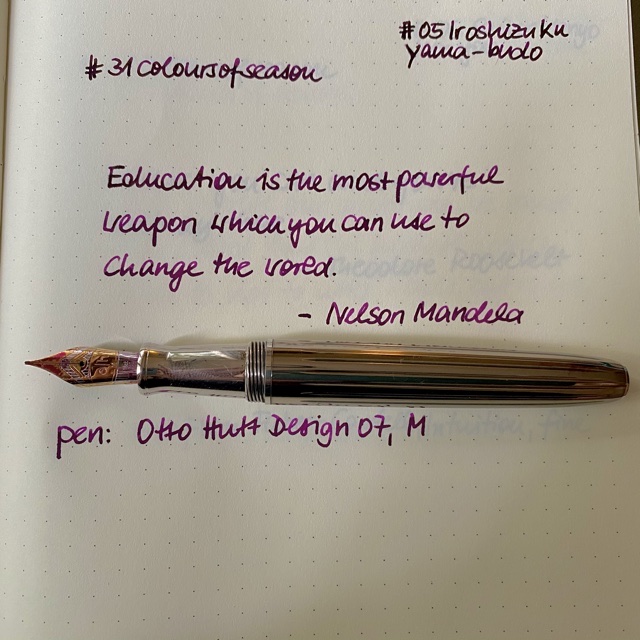 #05 Iroshizuku
yama-budo
#31coloursofseason
Education is the most powerful
weapon which you can use to
change the world.
- Nelson Mandela
pen: Otto Hutt Design 07, M
Theodore Roosevelt
Intuition, fine